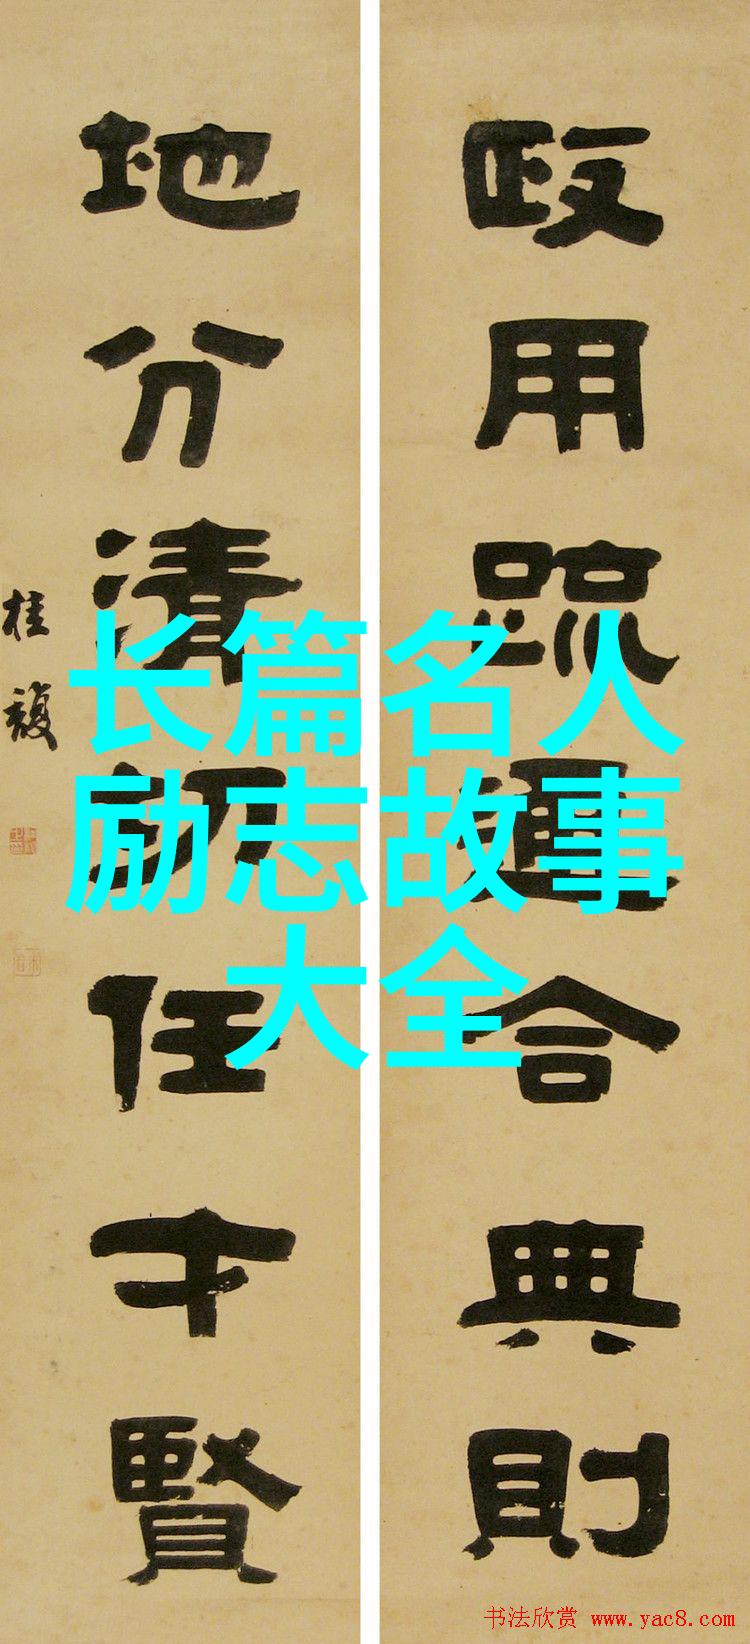 政用疏通合典則
地分清切任才賢
桂馥
长篇名人
励志故事
大全
书法欣赏 www.yac8.com